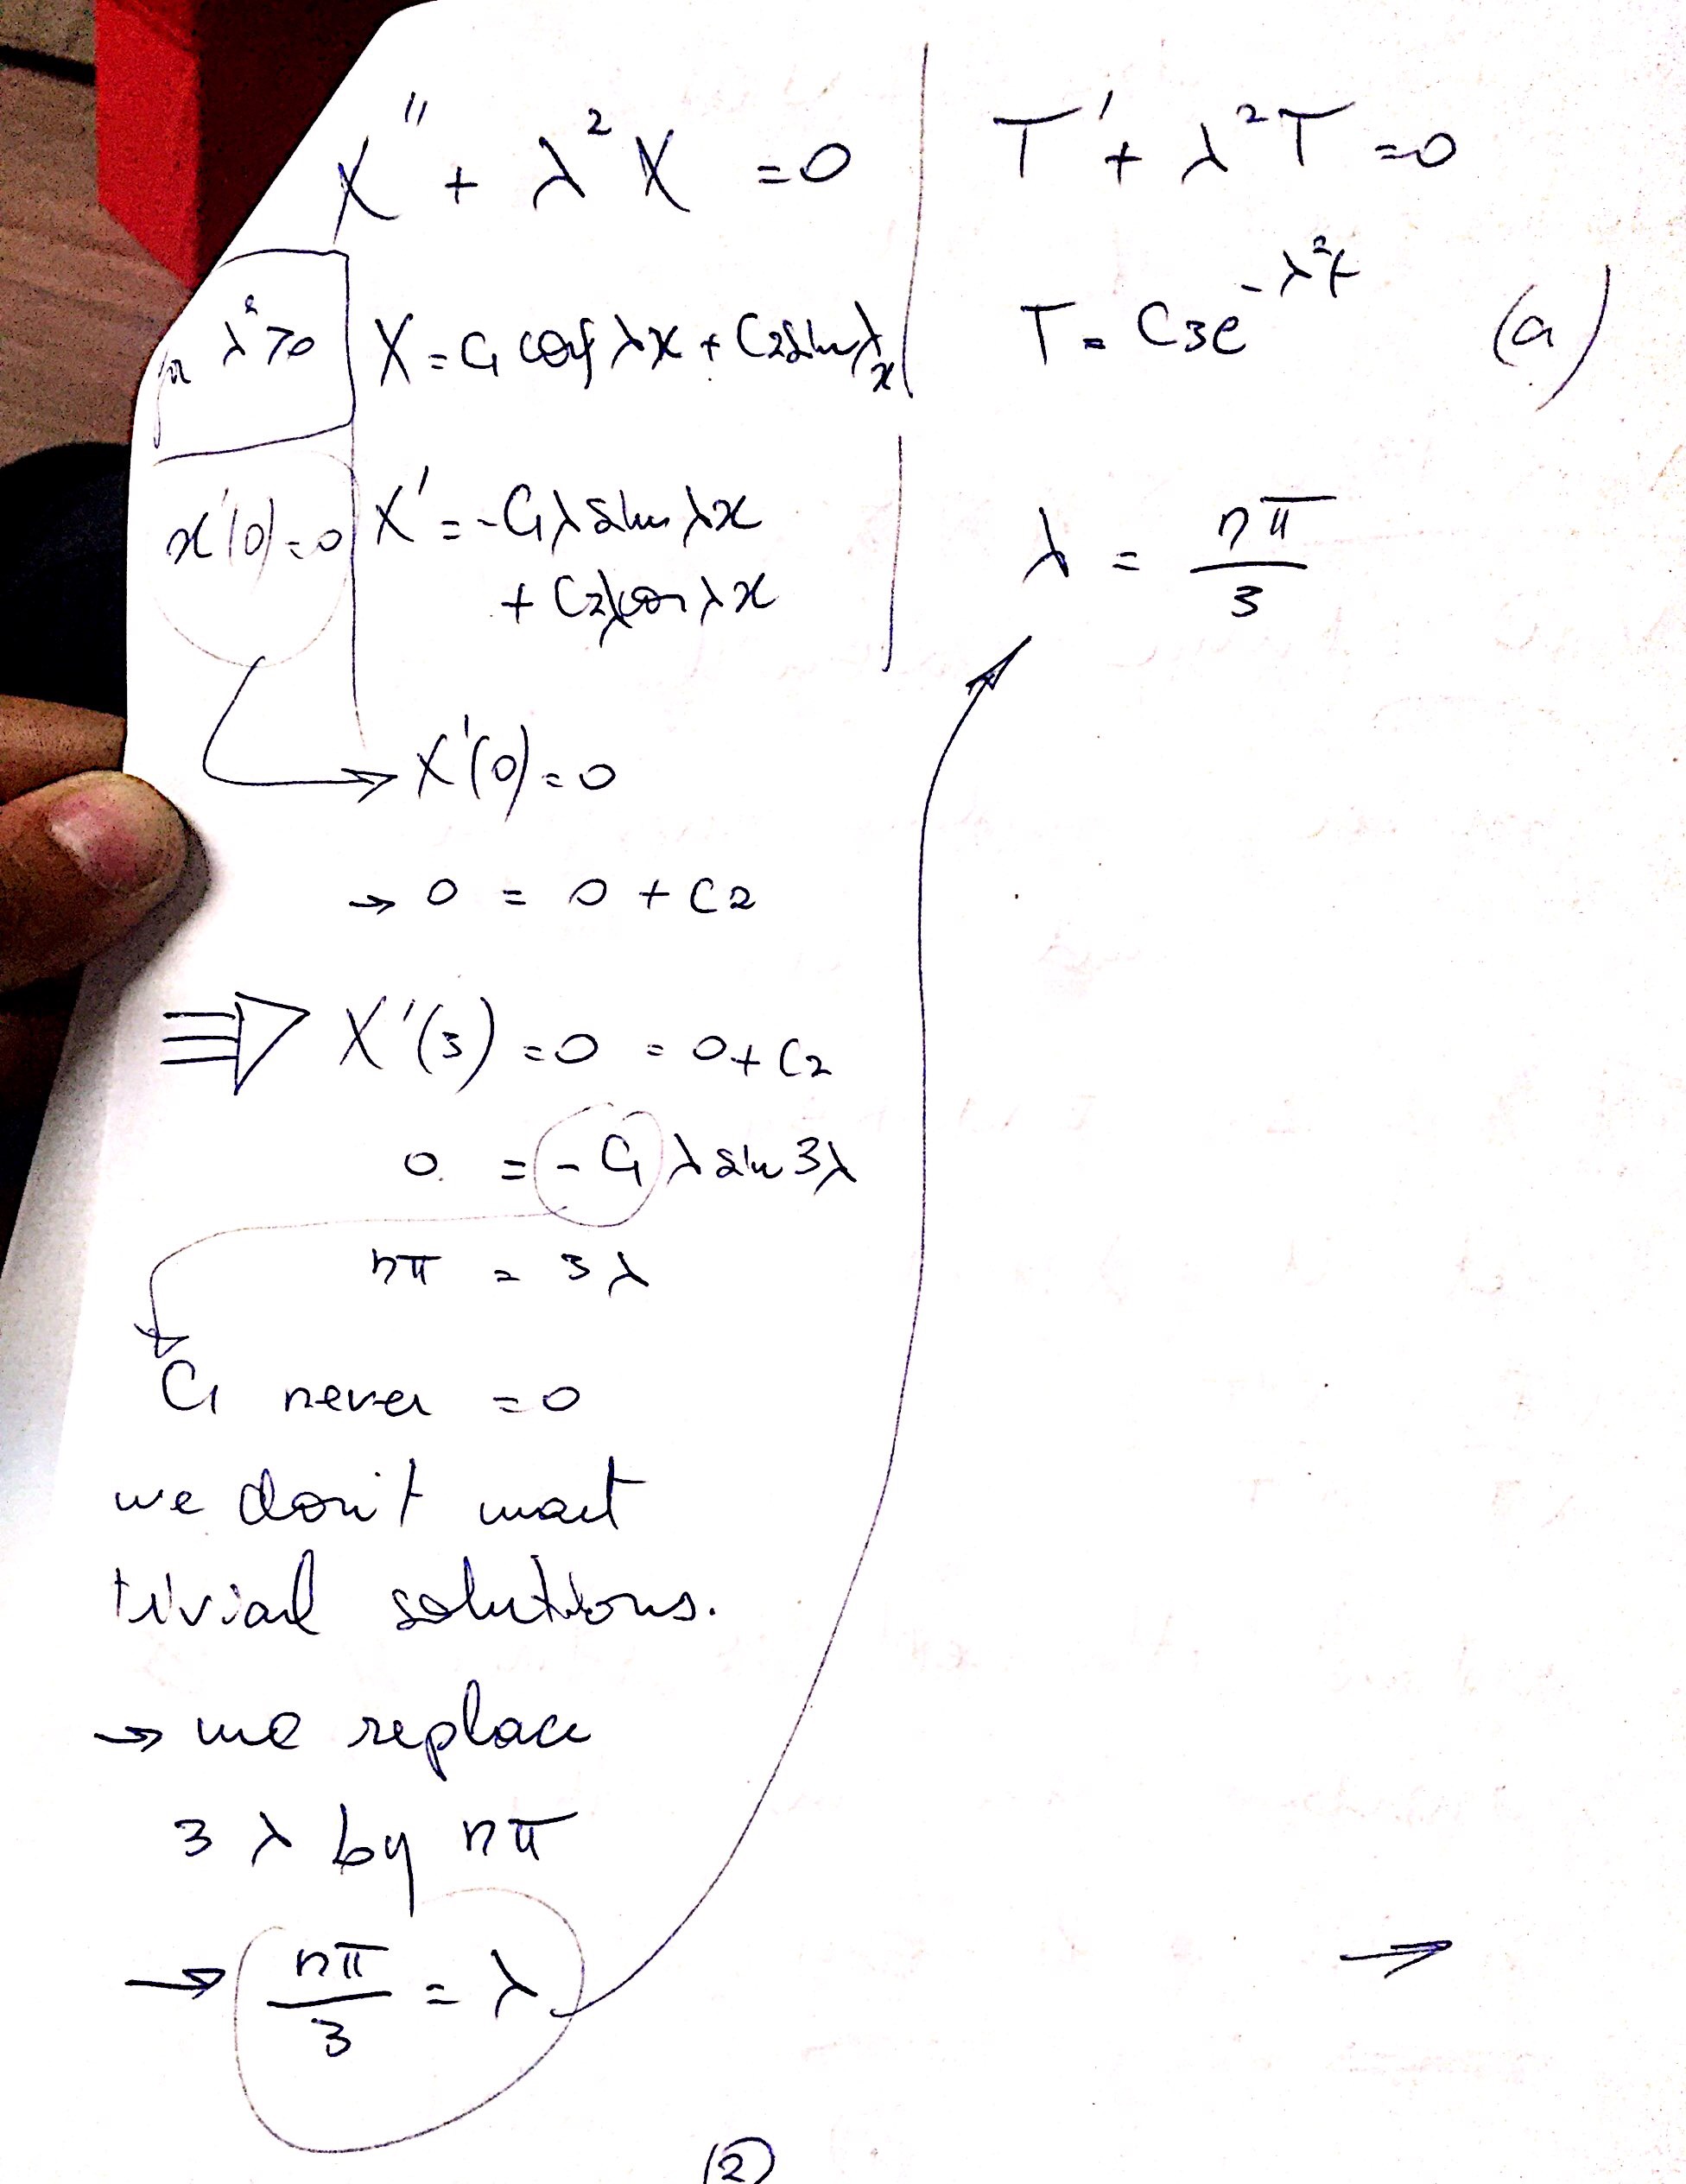 X'' + λ² X = 0
T' + λ² T = 0
λ² > 0
X = C1 cos λx + C2 sin λx
T = C3e^{-λ²t} (a)
x'(0) = 0
X' = -C1 λ sin λx
+ C2 λ cos λx
λ = nπ/3
X'(0) = 0
→ 0 = 0 + C2
⇒ X'(3) = 0 = 0 + C2
0 = -C1 λ sin 3λ
nπ = 3λ
C1 never = 0
we don't want
trivial solutions.
→ we replace
3 λ by nπ
→ nπ/3 = λ
→
(2)